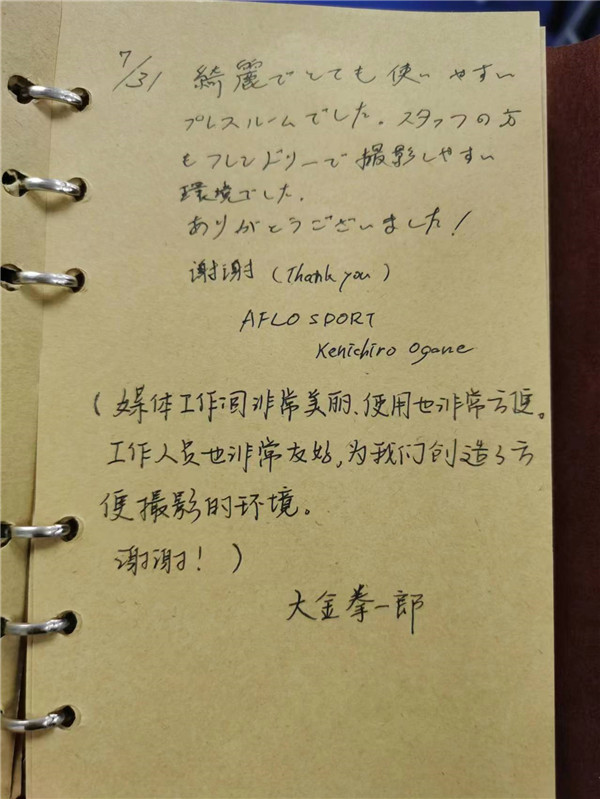 7/31 綺麗でとても使いやすい
プレスルームでした。スタッフの方
もフレンドリーで撮影しやすい
環境でした.
ありがとうございました!
谢谢 (Thank you)
AFLO SPORT
Kenichiro Ogane
(媒体工作间非常美丽、使用也非常方便。
工作人员也非常友好,为我们创造了方
便撮影的环境。
谢谢!)
大金拳一郎